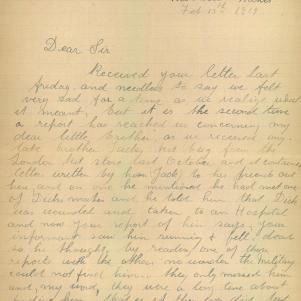 Feb 13th 1919
Dear Sir
Received your letter last
Friday and needless to say we felt
very sad for a time as we realize what
it meant, But it is the second time
a report has reached us concerning my
dear little Brother, as we received my
late brother Jack's kit bag from the
London kit store last October and it contained
letter written by him Jack, to his
here, and on one he mentioned he had met one
of Dicks mates and he told him that Dick
was wounded and taken to an Hospital
and now your report of him says your
informant saw him running & fell dead
as he thought, by reading one of these
reports with the other no wonder the Military
could not find him. they only missed him
and, my mind, they were a long time about